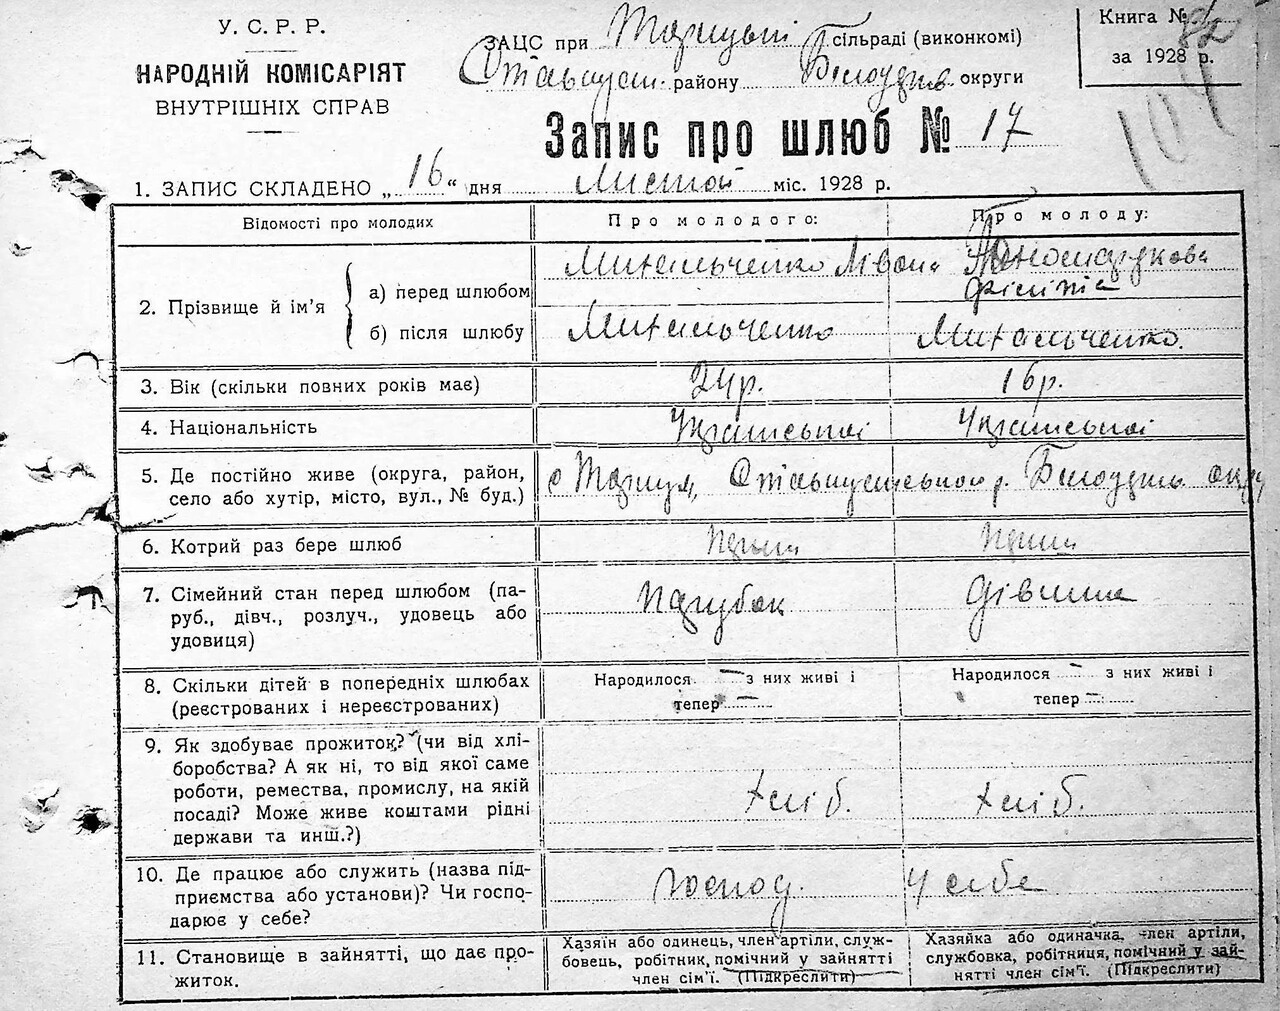 У. С. Р. Р.
НАРОДНІЙ КОМІСАРІЯТ
ВНУТРІШНІХ СПРАВ
ЗАЦС при сільраді (виконкомі)
району округи
Книга №
за 1928 р.
Запис про шлюб № 17
1. ЗАПИС СКЛАДЕНО „16“ дня Листоп міс. 1928 р.
Відомості про молодих
Про молодого:
Про молоду:
2. Прізвище й ім’я
а) перед шлюбом
Михальченко Івана
б) після шлюбу
Михальченко
Михальченко.
3. Вік (скільки повних років має)
24р.
16р.
4. Національність
Української
Української
5. Де постійно живе (округа, район,
село або хутір, місто, вул., № буд.)
с
6. Котрий раз бере шлюб
7. Сімейний стан перед шлюбом (па-
руб., дівч., розлуч., удовець або
удовиця)
Парубок
Дівчина
8. Скільки дітей в попередніх шлюбах
(реєстрованих і нереєстрованих)
Народилося — з них живі і
тепер —
Народилося — з них живі і
тепер —
9. Як здобуває прожиток? (чи від хлі-
боробства? А як ні, то від якої саме
роботи, ремества, промислу, на якій
посаді? Може живе коштами рідні
держави та инш.?)
хліб.
хліб.
10. Де працює або служить (назва під-
приємства або установи)? Чи госпо-
дарює у себе?
господ.
у себе
11. Становище в зайнятті, що дає про-
житок.
Хазяїн або одинець, член артіли, служ-
бовець, робітник, помічний у зайнятті
член сім’ї. (Підкреслити)
Хазяйка або одиначка, член артіли,
службовка, робітниця, помічний у зай-
нятті член сім’ї. (Підкреслити)